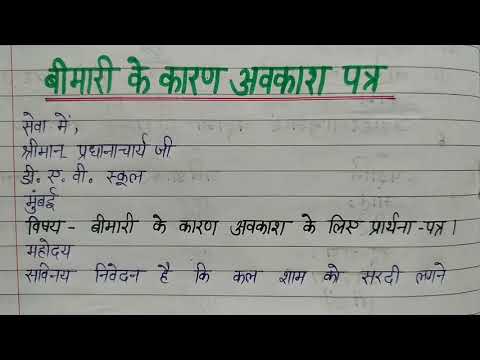 बीमारी के कारण अवकाश पत्र
सेवा में,
श्रीमान् प्रधानाचार्य जी
डी. ए. वी. स्कूल
मुंबई
विषय - बीमारी के कारण अवकाश के लिए प्रार्थना-पत्र।
महोदय
सविनय निवेदन है कि कल शाम को सरदी लगने